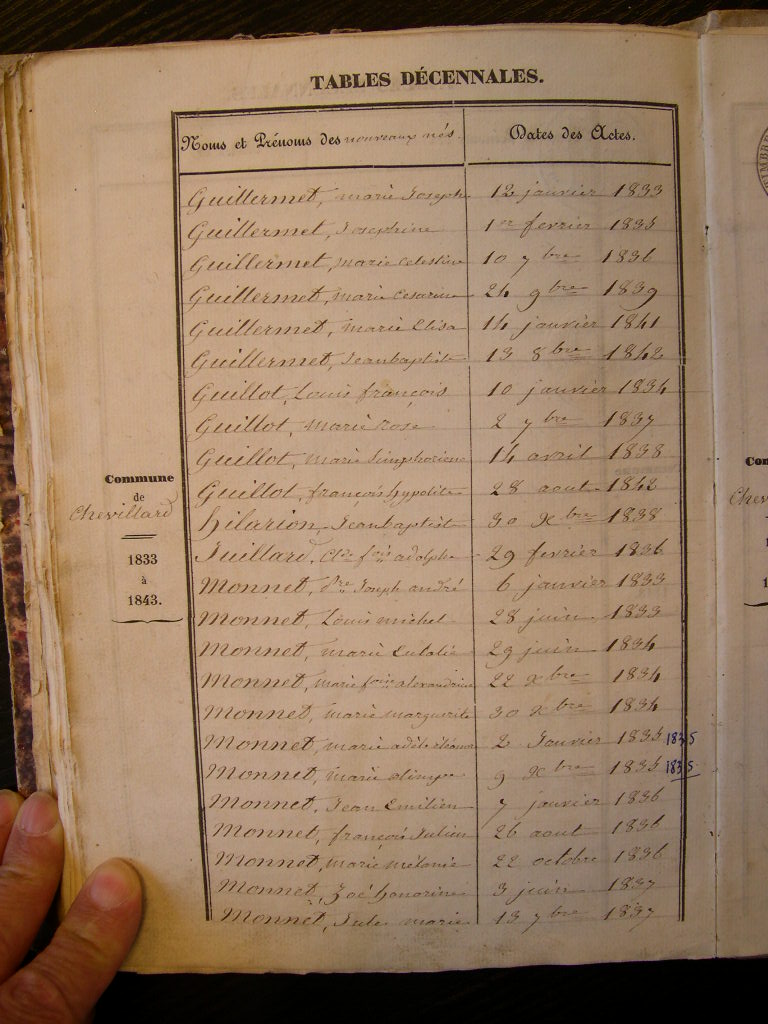 TABLES DÉCENNALES.
Noms et Prénoms des nouveaux nés. Dates des Actes.
Guillermet, marie Joseph 12 janvier 1833
Guillermet, Josephine 1er fevrier 1835
Guillermet, marie Celestine 10 7bre 1836
Guillermet, marie Cesarine 24 9bre 1839
Guillermet, marie Elisa 14 janvier 1841
Guillermet, Jeanbaptiste 13 8bre 1842
Guillot, Louis françois 10 janvier 1834
Guillot, marie rose 2 7bre 1837
Guillot, marie Simphorine 14 avril 1838
Guillot, françois hypolite 28 aout 1842
hilarion, Jeanbaptiste 30 Xbre 1838
Juillard, adolphe 29 fevrier 1836
Monnet, Joseph andré 6 janvier 1833
Monnet, Louis michel 28 juin 1833
Monnet, marie Eulalie 29 juin 1834
Monnet, marie alexandrine 22 Xbre 1834
Monnet, marie marguerite 30 Xbre 1834
Monnet, marie adèle 2 Janvier 1835 1835
Monnet, marie olimpe 9 Xbre 1835 1835
Monnet, Jean Emilien 7 janvier 1836
Monnet, françois Julien 26 aout 1836
Monnet, marie mélanie 22 octobre 1836
Monnet, Zoé honorine 3 juin 1837
Monnet, Jule marie 13 7bre 1837
Commune
de
Chevillard
1833
à
1843.